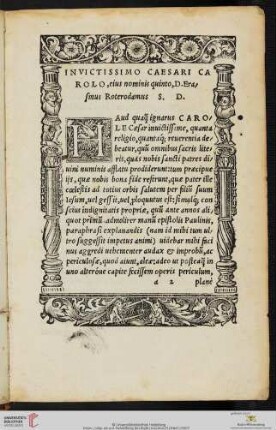 INVICTISSIMO CAESARI CA
ROLO, eius nominis quinto, D. Eras
mus Roterodamus S. D.
HAud quaq̃ ignarus CARO
LE Cæsar inuictissime, quanta
religio, quantaq; reuerentia de
beatur, quũ omnibus sacris lite
ris, quas nobis sancti patres di
uini numinis afflatu prodiderunt: tum præcipue
ijs, quæ nobis bona fide referunt, quæ pater ille
cœlestis ad totius orbis salutem per filiũ suum
Iesum, uel gessit, uel loquutus est: simulq; con
scius indignitatis propriæ, quũ ante annos ali
quot primũ admolirer manũ epistolis Paulinis,
paraphrasi explanandis (nam id mihi tum ul
tro suggessit impetus animi) uidebar mihi faci
nus aggredi uehementer audax & improbũ, ac
periculosæ, quod aiunt, aleæ: adeo ut posteaq̃ in
uno alteroue capite fecissem operis periculum,
a 2 planè
UNIVERSITÄTS-
BIBLIOTHEK
HEIDELBERG
© Universitätsbibliothek Heidelberg